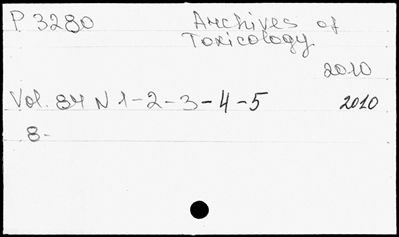 P 3280 Archives of
Toxicology
2010
Vol. 84 N 1-2-3-4-5 2010
8-